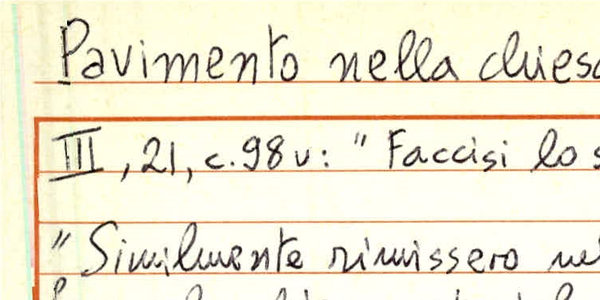 Pavimento nella chiesa
III, 21, c. 98 v: " Faccisi lo s
" Similmente rimissero ne